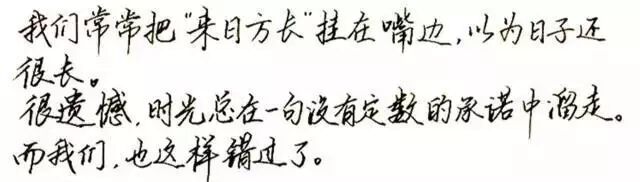 我们常常把"来日方长"挂在嘴边,以为日子还
很长。
很遗憾,时光总在一句没有定数的承诺中溜走。
而我们,也这样错过了。